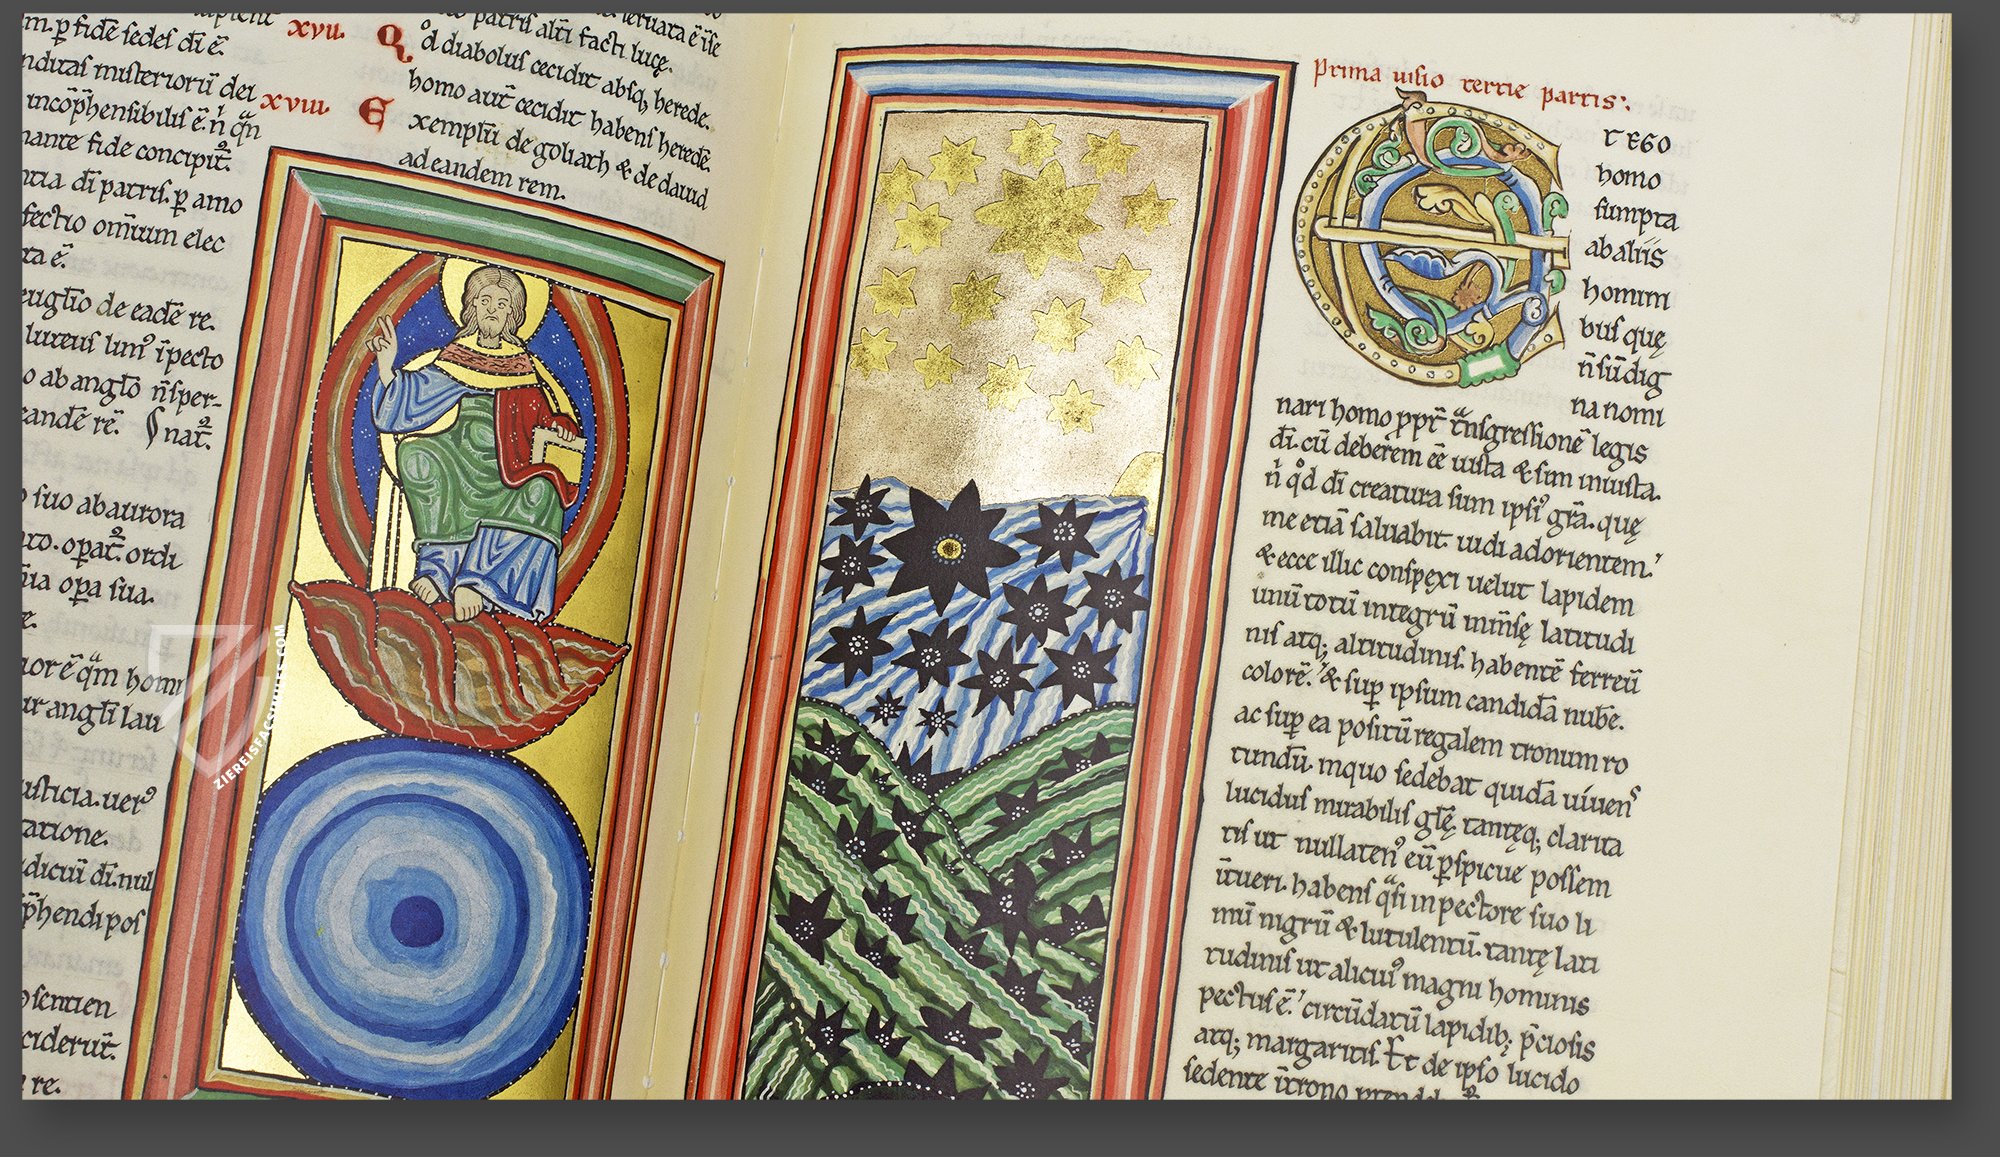 m. p̱ fidē sedeſ dī ē.
nditaſ miſterioꝛū dei
incōp̱hensibiliſ ē. n̄ qn̄
nante fide concipit̄.
ntia dī patriſ. p̱ amo
fectio omīum elec
ta ē.
euglīo de eadē re.
luteuſ limꝰ īpecto
o ab anglo n̄ſper-
eandē re. ſnat̄.
o ſuo ab aurora
ordi
opa ſua.
e.
uoꝛ ē qm̄ homi
ur anglī lau
uſticia. uerꝰ
tatione.
dictū dī. nul
p̄hendi poſ
oſentien
ciderūt.
re.
xvii. Q
d diabolus cecidit absq, herede.
homo aut̄ cecidit habenſ heredē.
xviii. E xemplū de goliath & de dauid
ad eandem rem.
ZIEREISFACSIMILE.COM
Prima uiſio tertie partis:.
ET EGO
homo
ſumpta
ab aliis
homini
buſ quę
n̄ ſū dig
na nomi
nari homo ppt̄ tnſgreſſionē legis
dī. cū deberem eē iuſta & ſum iniuſta.
n̄ qd dī creatura ſum ipſiꝰ gr̄a. quę
me etiā ſaluabit. uidi ad orientem.
& ecce illic conſpexi uelut lapidem
unū totū integrū inm̄ſę latitudi
niſ atq; altitudiniſ. habentē ferreū
colorē. & ſup ipſum candidā nubē.
ac ſup ea poſitū regalem tronum ro
tundū. inquo ſedebat quidā uiuenſ
lucidus mirabiliſ glę. tantęq; clarita
tis ut nullatenꝰ eū p̱ſpicue poſſem
ītueri. habenſ qſi in pectore ſuo li
mū nigrū & lutulentū. tantę lati
tudinis ut alicuiꝰ magni hominis
pectuſ ē. circūdatū lapidib; p̄cioſis
atq; margaritiſ. Et de ipſo lucido
ſedente ītrono